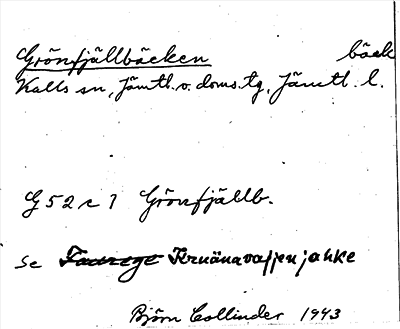 Grönfjällbäcken bäck
Kalls sn, Jämtl. v. doms.tg, Jämtl. l.
G 52 c 1 Grönfjällb.
Se
Björn Collinder 1943